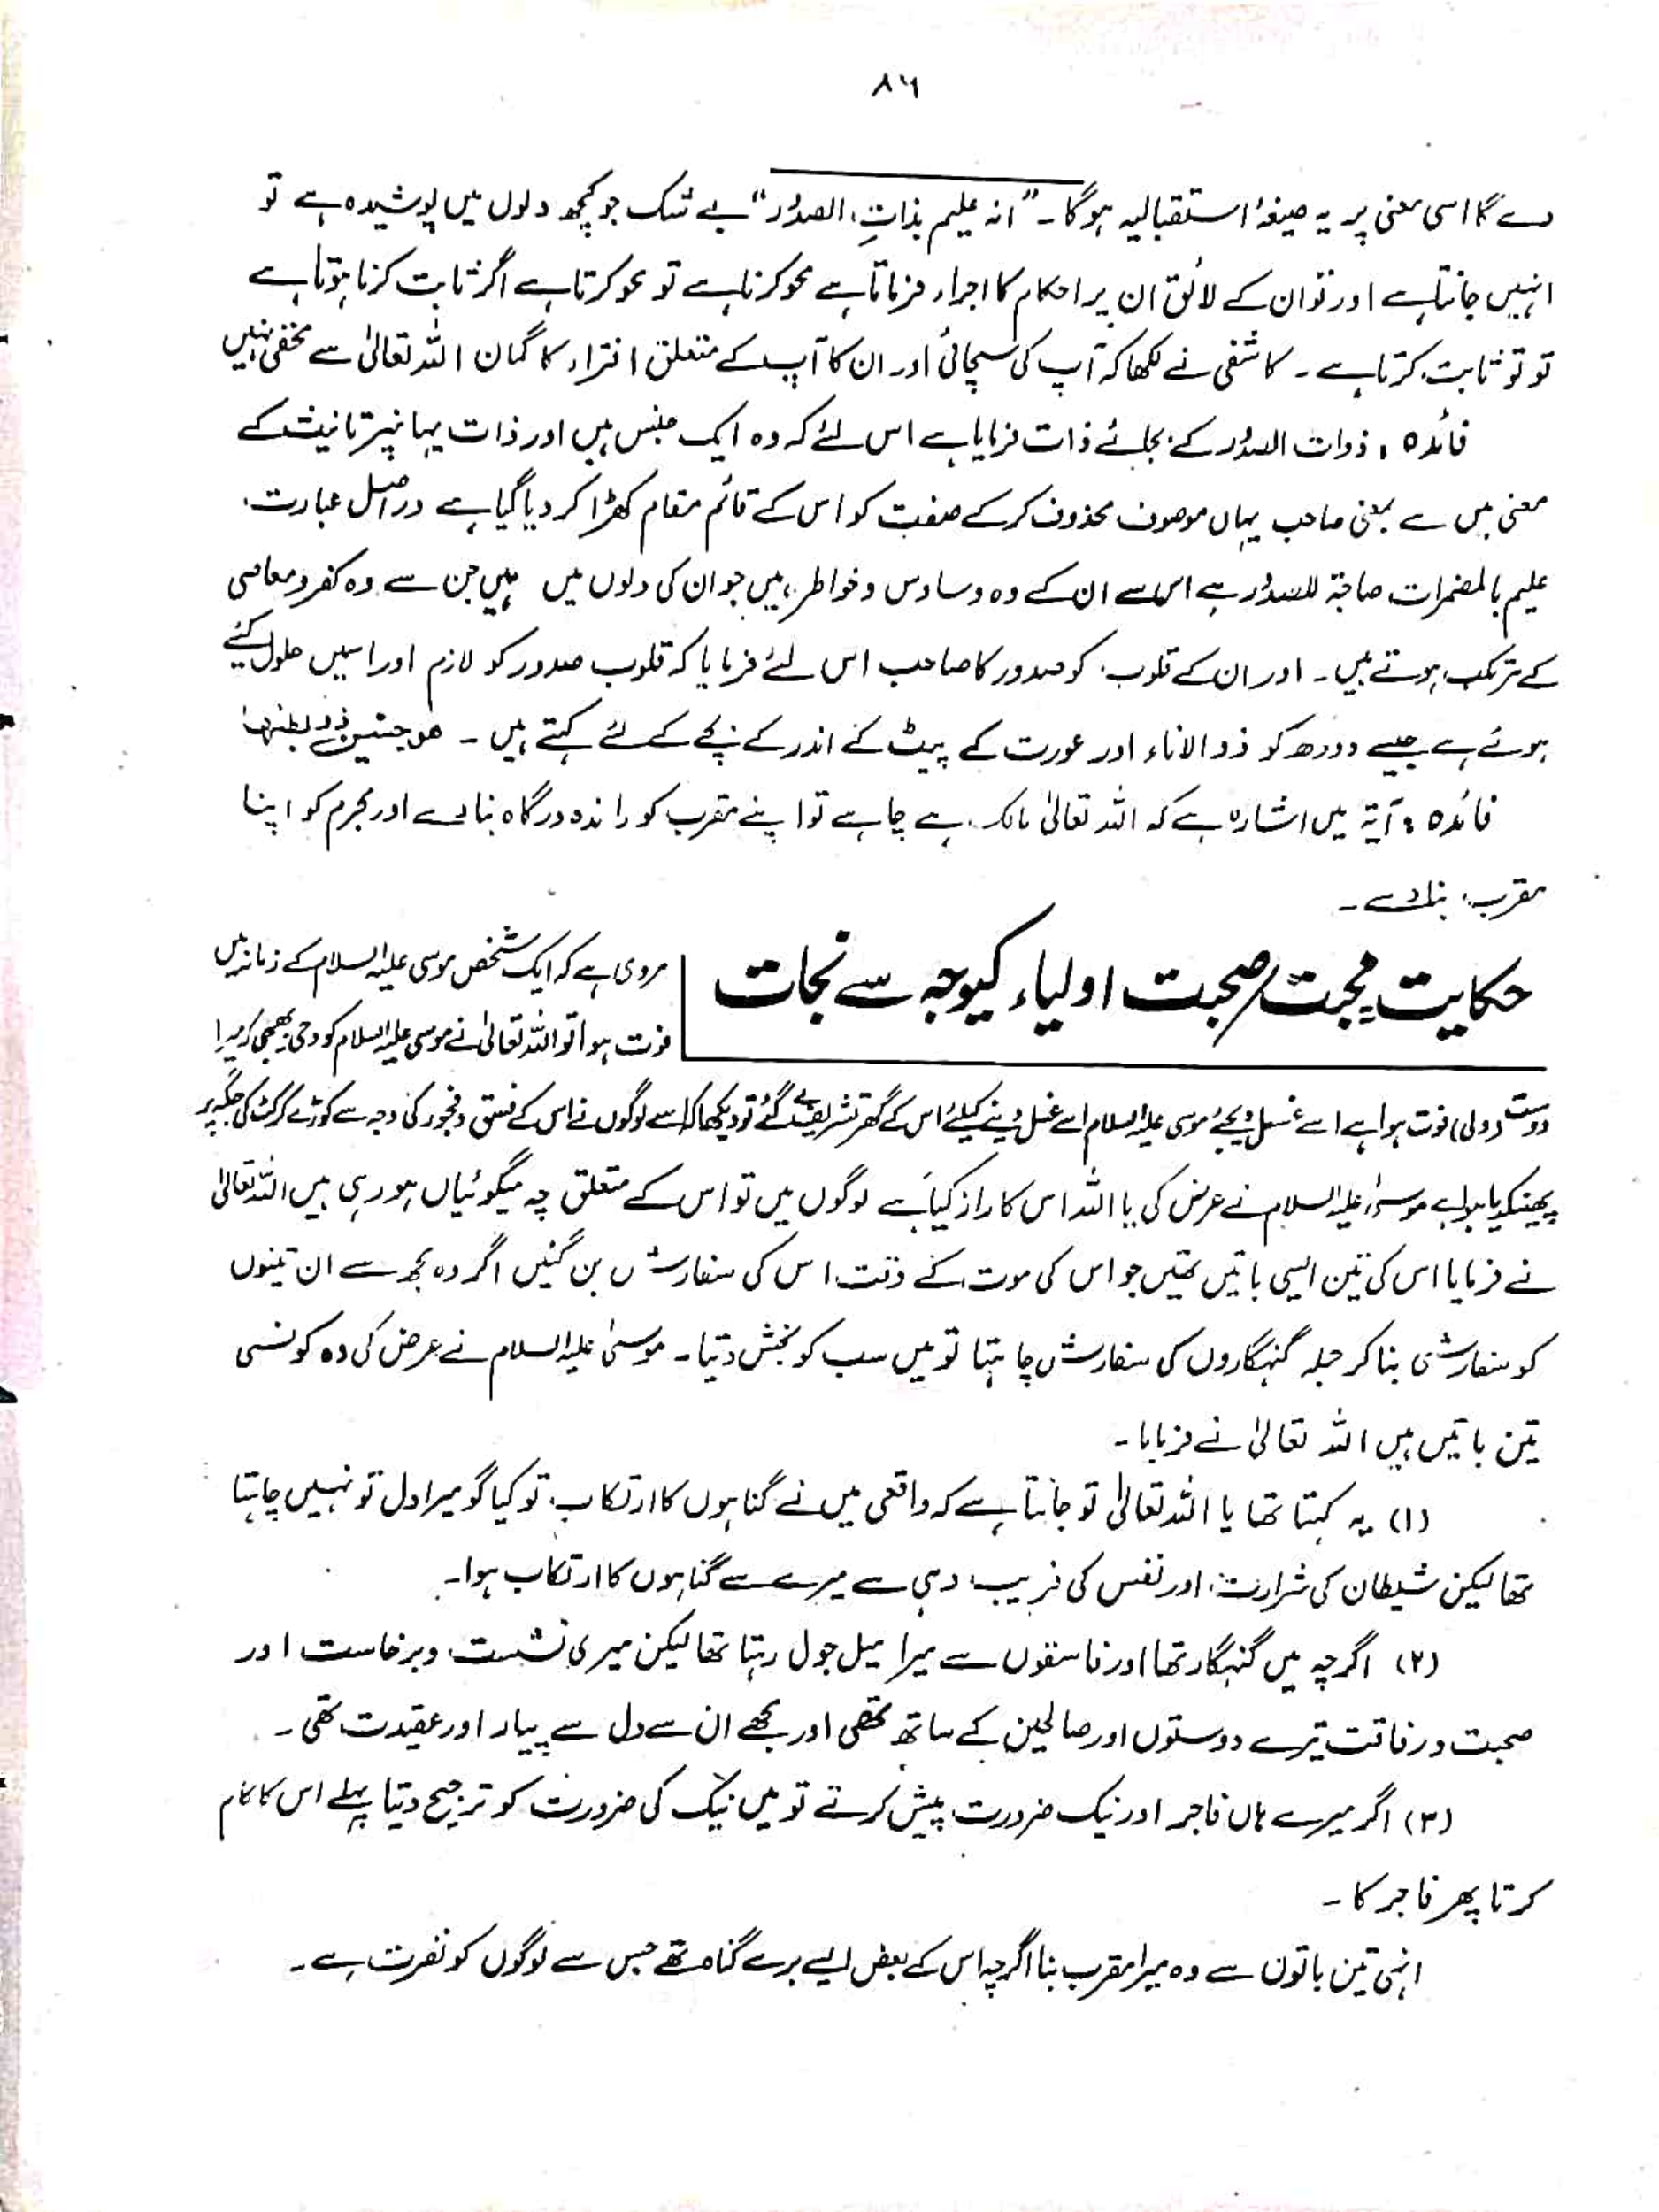 ۸۶
دے گا اسی معنی پر یہ صیغۂ استقبالیہ ہوگا۔ "انہ علیم بذاتِ الصدُور" بے شک جو کچھ دلوں میں پوشیدہ ہے تو
انہیں جانتا ہے اور تو ان کے لائق ان پر احکام کا اجراء فرماتا ہے محو کرنا ہے تو محو کرتا ہے اگر ثابت کرنا ہوتا ہے
تو تو ثابت کرتا ہے۔ کاشفی نے لکھا کہ آپ کی سچائی اور ان کا آپ کے متعلق افتراء کا گمان اللہ تعالیٰ سے مخفی نہیں
فائدہ : ذوات الصدُور کے بجائے ذات فرمایا ہے اس لئے کہ وہ ایک جنس ہیں اور ذات یہاں پر تانیث کے
معنی میں ہے بمعنی صاحب یہاں موصوف محذوف کر کے صفت کو اس کے قائم مقام کھڑا کر دیا گیا ہے دراصل عبارت
علیم بالمضمرات صاحبۃ للصدُور ہے اس سے ان کے وہ وساوس و خواطر ہیں جو ان کی دلوں میں ہیں جن سے وہ کفر و معاصی
کے مرتکب ہوتے ہیں۔ اور ان کے قلوب کو صدور کا صاحب اس لئے فرمایا کہ قلوب صدور کو لازم اور اسمیں حلول کئے
ہوئے ہے جیسے دودھ کو ذوالاناء اور عورت کے پیٹ کے اندر کے بچے کے لئے کہتے ہیں۔ ھو جنین ذو بطنہا
فائدہ : آیۃ میں اشارہ ہے کہ اللہ تعالیٰ مالک ہے چاہے تو اپنے مقرب کو راندہ درگاہ بنا دے اور مجرم کو اپنا
مقرب بنا دے۔
حکایت محبت صحبت اولیاء کیوجہ سے نجات
مروی ہے کہ ایک شخص موسی علیہ السلام کے زمانہ میں
فوت ہوا تو اللہ تعالیٰ نے موسی علیہ السلام کو وحی بھیجی کہ میرا
دوست (ولی) فوت ہوا ہے اسے غسل دیجئے موسی علیہ السلام اسے غسل دینے کیلئے اس کے گھر تشریف لے گئے تو دیکھا کہ اسے لوگوں نے اس کے فسق و فجور کی وجہ سے کوڑے کرکٹ کی جگہ پر
پھینک دیا ہوا ہے موسیٰ علیہ السلام نے عرض کی یا اللہ اس کا راز کیا ہے لوگوں میں تو اس کے متعلق چہ میگوئیاں ہو رہی ہیں اللہ تعالیٰ
نے فرمایا اس کی تین ایسی باتیں تھیں جو اس کی موت کے وقت اس کی سفارش بن گئیں اگر وہ مجھ سے ان تینوں
کو سفارشی بنا کر جملہ گنہگاروں کی سفارش چاہتا تو میں سب کو بخش دیتا۔ موسیٰ علیہ السلام نے عرض کی وہ کونسی
تین باتیں ہیں اللہ تعالیٰ نے فرمایا۔
(۱) یہ کہتا تھا یا اللہ تعالیٰ تو جانتا ہے کہ واقعی میں نے گناہوں کا ارتکاب تو کیا گو میرا دل تو نہیں چاہتا
تھا لیکن شیطان کی شرارت اور نفس کی فریب دہی سے میرے سے گناہوں کا ارتکاب ہوا۔
(۲) اگرچہ میں گنہگار تھا اور فاسقوں سے میرا میل جول رہتا تھا لیکن میری نشست و برخاست اور
صحبت و رفاقت تیرے دوستوں اور صالحین کے ساتھ تھی اور مجھے ان سے دل سے پیار اور عقیدت تھی۔
(۳) اگر میرے ہاں فاجر اور نیک ضرورت پیش کرتے تو میں نیک کی ضرورت کو ترجیح دیتا پہلے اس کا کام
کرتا پھر فاجر کا۔
انہی تین باتوں سے وہ میرا مقرب بنا اگرچہ اس کے بعض ایسے برے گناہ تھے جس سے لوگوں کو نفرت ہے۔